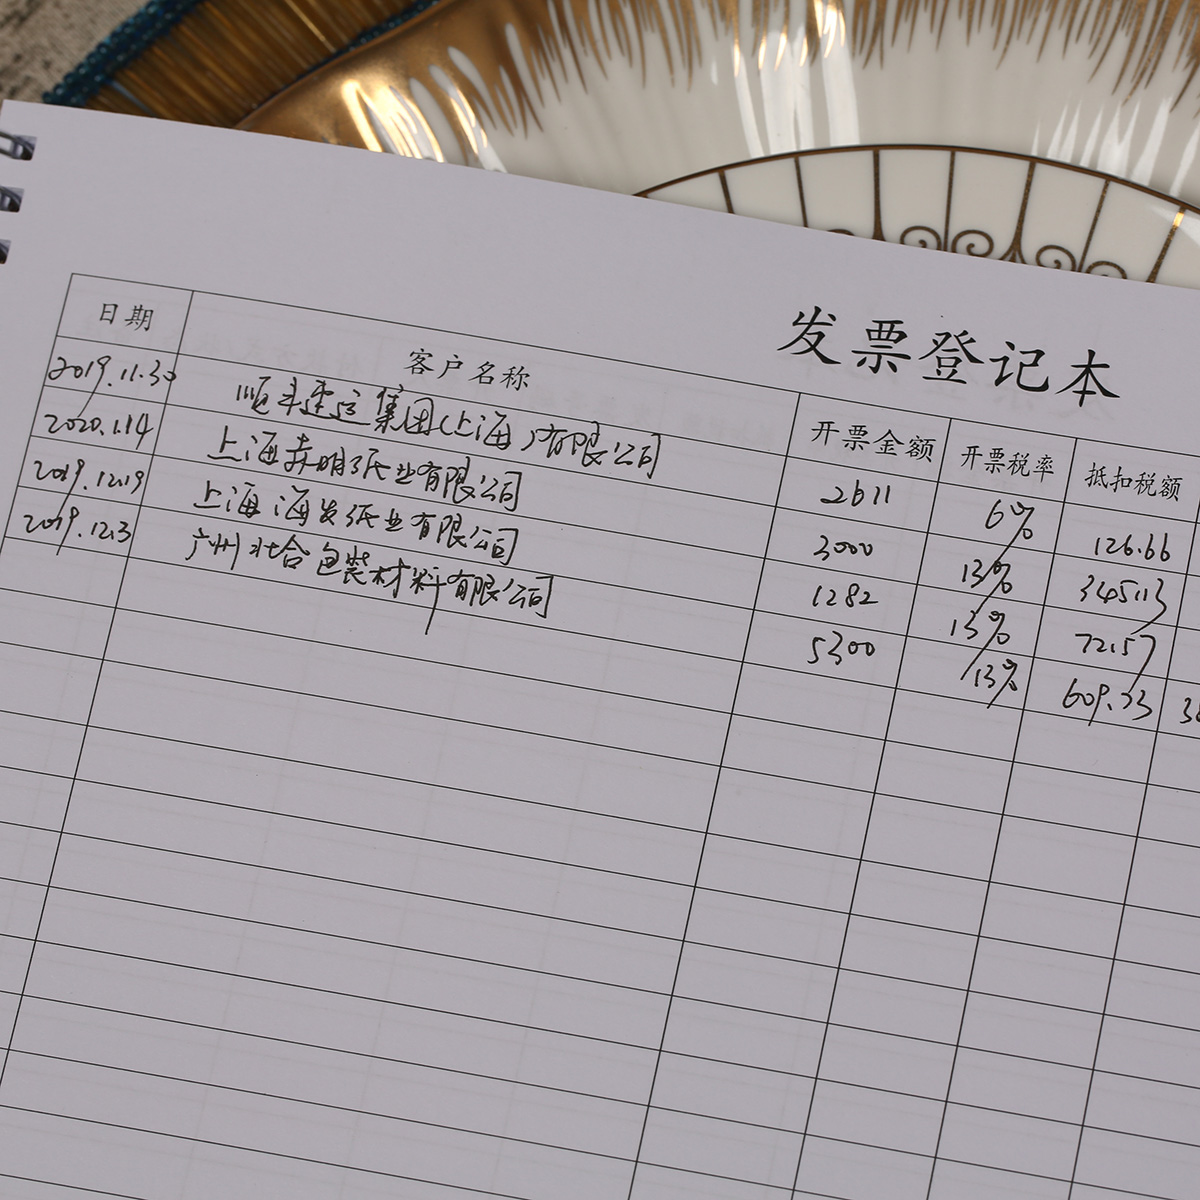 发票登记本
日期 客户名称 开票金额 开票税率 抵扣税额
2019.11.30 顺丰速运集团(上海)有限公司 2611 6% 126.66
2020.1.14 上海 纸业有限公司 3000 13% 345.13
2019.12.19 上海海发纸业有限公司 1282 13% 72.57
2019.12.3 广州壮合包装材料有限公司 5300 13% 609.33